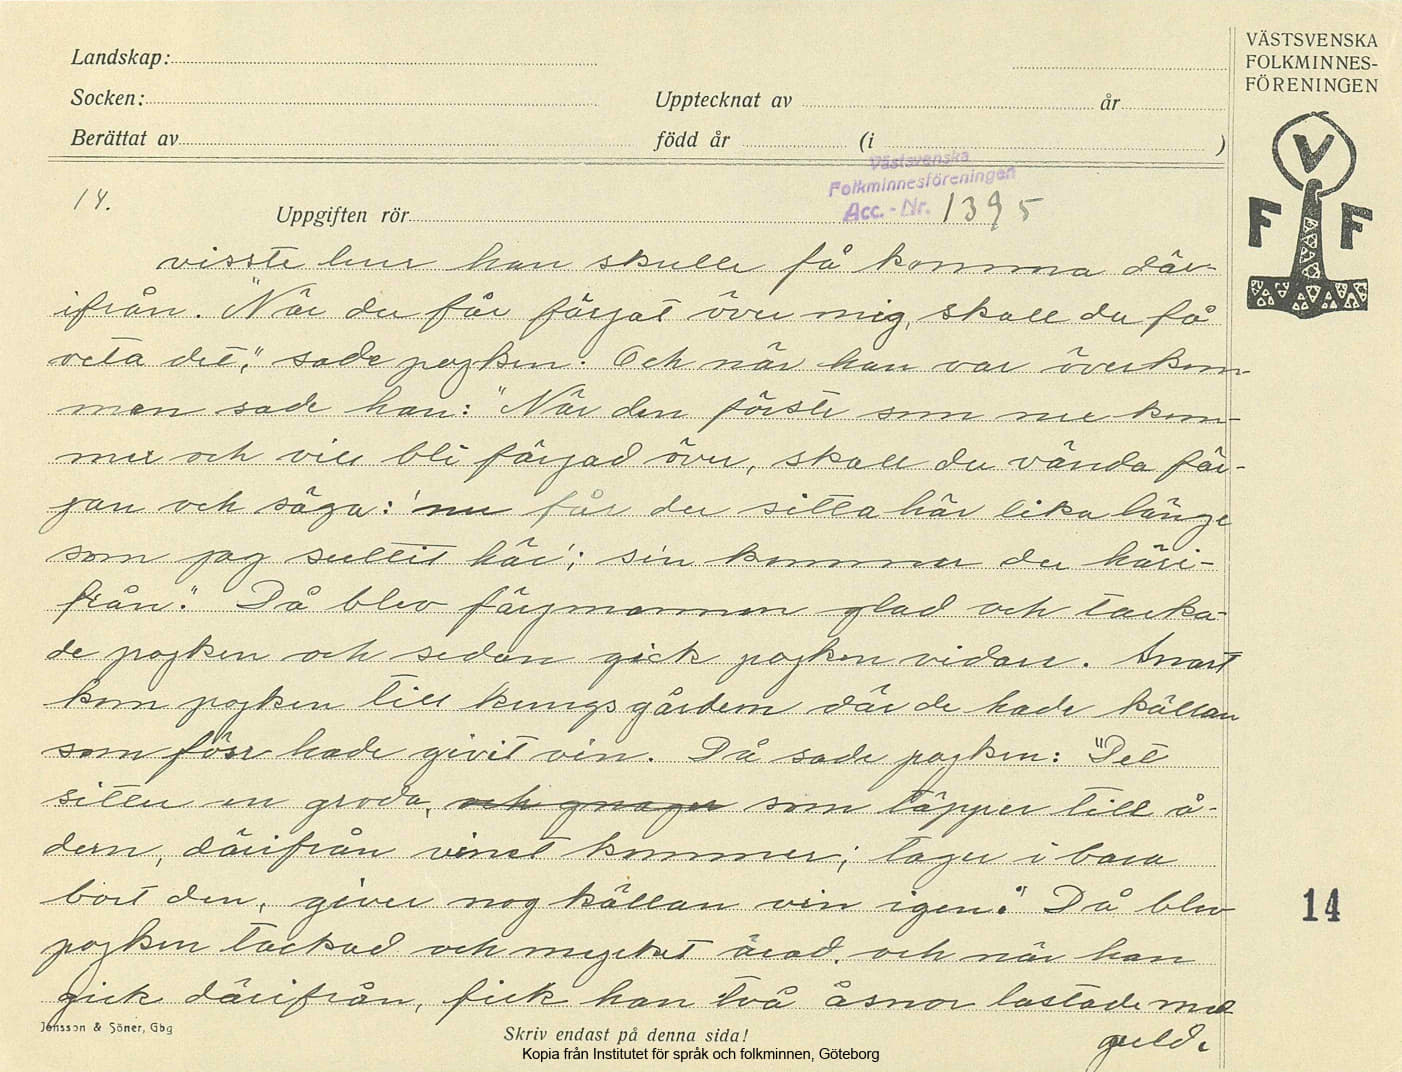 Landskap:
Socken:
Berättat av
Upptecknat av år
född år (i )
VÄSTSVENSKA
FOLKMINNES-
FÖRENINGEN
V
F F
Västsvenska
Folkminnesföreningen
Acc.-Nr. 1395
14.
Uppgiften rör
visste hur han skulle få komma där-
ifrån. "När du får färjat över mig, skall du få
veta det," sade pojken. Och när han var överkom-
men sade han: "När den förste som nu kom-
mer och vill bli färjad över, skall du vända fär-
jan och säga: 'nu får du sitta här lika länge
som jag suttit här'; sin kommer du häri-
från." Då blev färjmannen glad och tacka-
de pojken och sedan gick pojken vidare. Snart
kom pojken till kungsgården där de hade källan
som förr hade givit vin. Då sade pojken: "Det
sitter en groda, och gnager som täpper till å-
dern, därifrån vinet kommer; tager i bara
bort den, giver nog källan vin igen." Då blev
pojken tackad och mycket ärad, och när han
gick därifrån, fick han två åsnor lastade med
guld.
14
Jonsson & Söner, Gbg
Skriv endast på denna sida!
Kopia från Institutet för språk och folkminnen, Göteborg